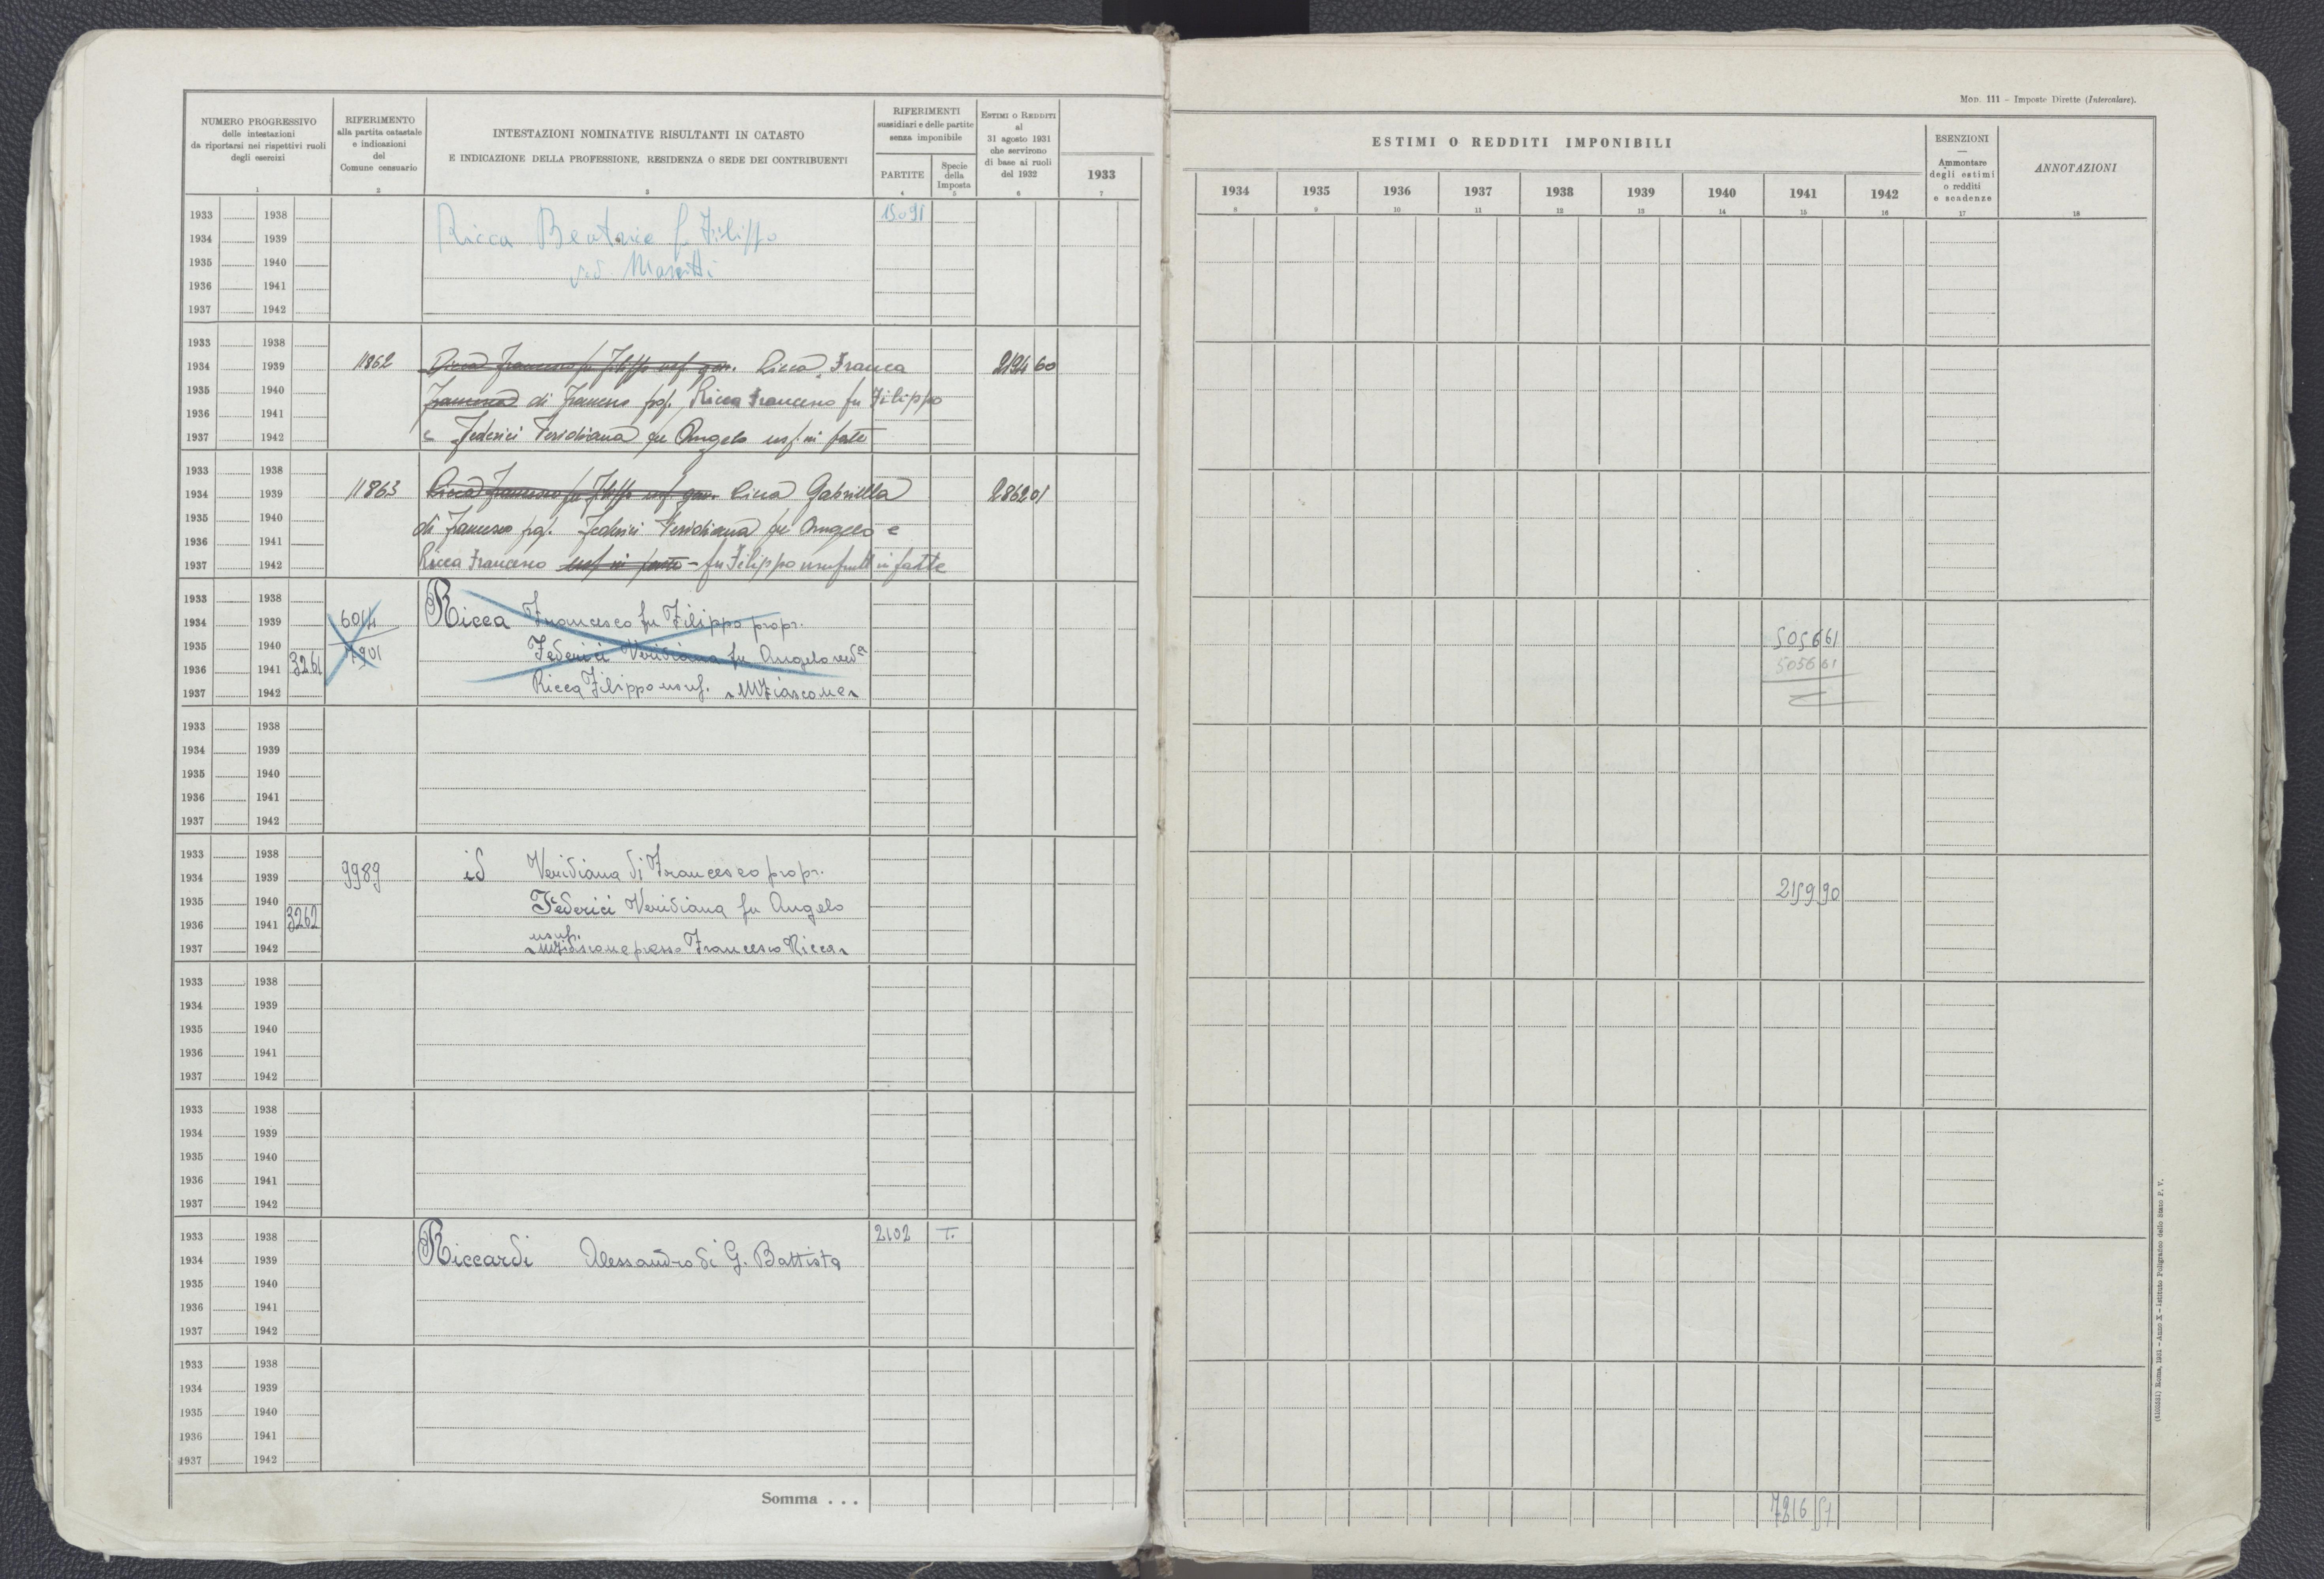 Mod. 111 - Imposte Dirette (Intercalare).
NUMERO PROGRESSIVO
delle intestazioni
da riportarsi nei rispettivi ruoli
degli esercizi
1
RIFERIMENTO
alla partita catastale
e indicazioni
del
Comune censuario
2
INTESTAZIONI NOMINATIVE RISULTANTI IN CATASTO
E INDICAZIONE DELLA PROFESSIONE, RESIDENZA O SEDE DEI CONTRIBUENTI
3
RIFERIMENTI
sussidiari e delle partite
senza imponibile
PARTITE
4
Specie
della
Imposta
5
ESTIMI O REDDITI
al
31 agosto 1931
che servirono
di base ai ruoli
del 1932
6
1933
7
ESTIMI O REDDITI IMPONIBILI
1934 1935 1936 1937 1938 1939 1940 1941 1942
8 9 10 11 12 13 14 15 16
ESENZIONI
—
Ammontare
degli estimi
o redditi
e scadenze
17
ANNOTAZIONI
18
1933 1938 15091
1934 1939 Ricca Beatrice fu Filippo
1935 1940
1936 1941
1937 1942
1933 1938
1934 1939 11862 Ricca Francesco fu Filippo usf. gen. Ricca Franca 2194 60
1935 1940 Francesca di Francesco prop. Ricca Francesco fu Filippo
1936 1941
1937 1942 e Federici Veridiana fu Angelo usf. in parte
1933 1938
1934 1939 11863 Ricca Francesco fu Filippo usf. gen. Ricca Gabriella 2862 01
1935 1940 di Francesco prop. Federici Veridiana fu Angelo e
1936 1941
1937 1942 Ricca Francesco usf in parte - fu Filippo usufrutt in parte
1933 1938
1934 1939 6014 Ricca Francesco fu Filippo propr.
1935 1940 Federici Veridiana fu Angelo ved.a 5056 61
1936 1941 3261 5056 61
1937 1942 Ricca Filippo usuf.
1933 1938
1934 1939
1935 1940
1936 1941
1937 1942
1933 1938
1934 1939 9989 id Veridiana di Francesco propr. 2159 90
1935 1940 Federici Veridiana fu Angelo
1936 1941 3262 usuf.
1937 1942 presso Francesco Ricca
1933 1938
1934 1939
1935 1940
1936 1941
1937 1942
1933 1938
1934 1939
1935 1940
1936 1941
1937 1942
1933 1938 2102 T.
1934 1939 Riccardi Alessandro di G. Battista
1935 1940
1936 1941
1937 1942
1933 1938
1934 1939
1935 1940
1936 1941
1937 1942
Somma . . . 7216 51